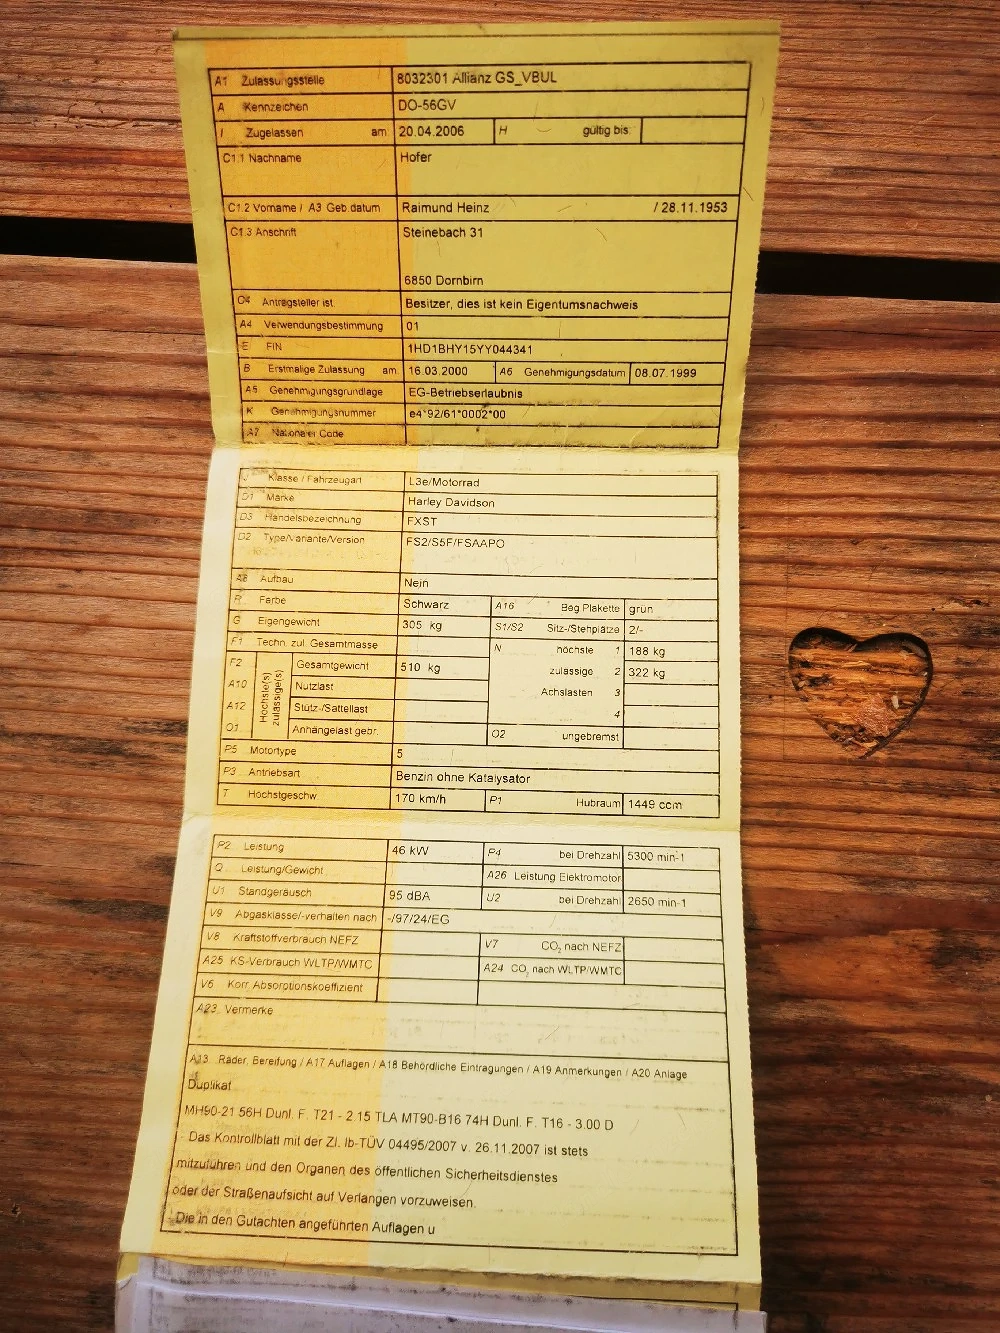 A1 Zulassungsstelle 8032301 Allianz GS_VBUL
A Kennzeichen DO-56GV
I Zugelassen am: 20.04.2006 H gültig bis:
C1.1 Nachname Hofer
C1.2 Vorname / A3 Geb.datum Raimund Heinz / 28.11.1953
C1.3 Anschrift Steinebach 31
6850 Dornbirn
C4 Antragsteller ist: Besitzer, dies ist kein Eigentumsnachweis
A4 Verwendungsbestimmung 01
E FIN 1HD1BHY15YY044341
B Erstmalige Zulassung am: 16.03.2000 A6 Genehmigungsdatum 08.07.1999
A5 Genehmigungsgrundlage EG-Betriebserlaubnis
K Genehmigungsnummer e4*92/61*0002*00
A7 Nationaler Code
J Klasse / Fahrzeugart L3e/Motorrad
D1 Marke Harley Davidson
D3 Handelsbezeichnung FXST
D2 Type/Variante/Version FS2/S5F/FSAAPO
A8 Aufbau Nein
R Farbe Schwarz A16 Beg Plakette grün
G Eigengewicht 305 kg S1/S2 Sitz-/Stehplätze 2/-
F1 Techn. zul. Gesamtmasse N höchste 1 188 kg
F2 Höchste(s) zulässige(s) Gesamtgewicht 510 kg zulässige 2 322 kg
A10 Nutzlast Achslasten 3
A12 Stütz-/Sattellast 4
O1 Anhängelast gebr. O2 ungebremst
P5 Motortype 5
P3 Antriebsart Benzin ohne Katalysator
T Höchstgeschw. 170 km/h P1 Hubraum 1449 ccm
P2 Leistung 46 kW P4 bei Drehzahl 5300 min-1
Q Leistung/Gewicht A26 Leistung Elektromotor
U1 Standgeräusch 95 dBA U2 bei Drehzahl 2650 min-1
V9 Abgasklasse/-verhalten nach -/97/24/EG
V8 Kraftstoffverbrauch NEFZ V7 CO₂ nach NEFZ
A25 KS-Verbrauch WLTP/WMTC A24 CO₂ nach WLTP/WMTC
V6 Korr. Absorptionskoeffizient
A23 Vermerke
A13 Räder, Bereifung / A17 Auflagen / A18 Behördliche Eintragungen / A19 Anmerkungen / A20 Anlage
Duplikat
MH90-21 56H Dunl. F. T21 - 2.15 TLA MT90-B16 74H Dunl. F. T16 - 3.00 D
- Das Kontrollblatt mit der Zl. Ib-TÜV 04495/2007 v. 26.11.2007 ist stets
mitzuführen und den Organen des öffentlichen Sicherheitsdienstes
oder der Straßenaufsicht auf Verlangen vorzuweisen.
- Die in den Gutachten angeführten Auflagen u